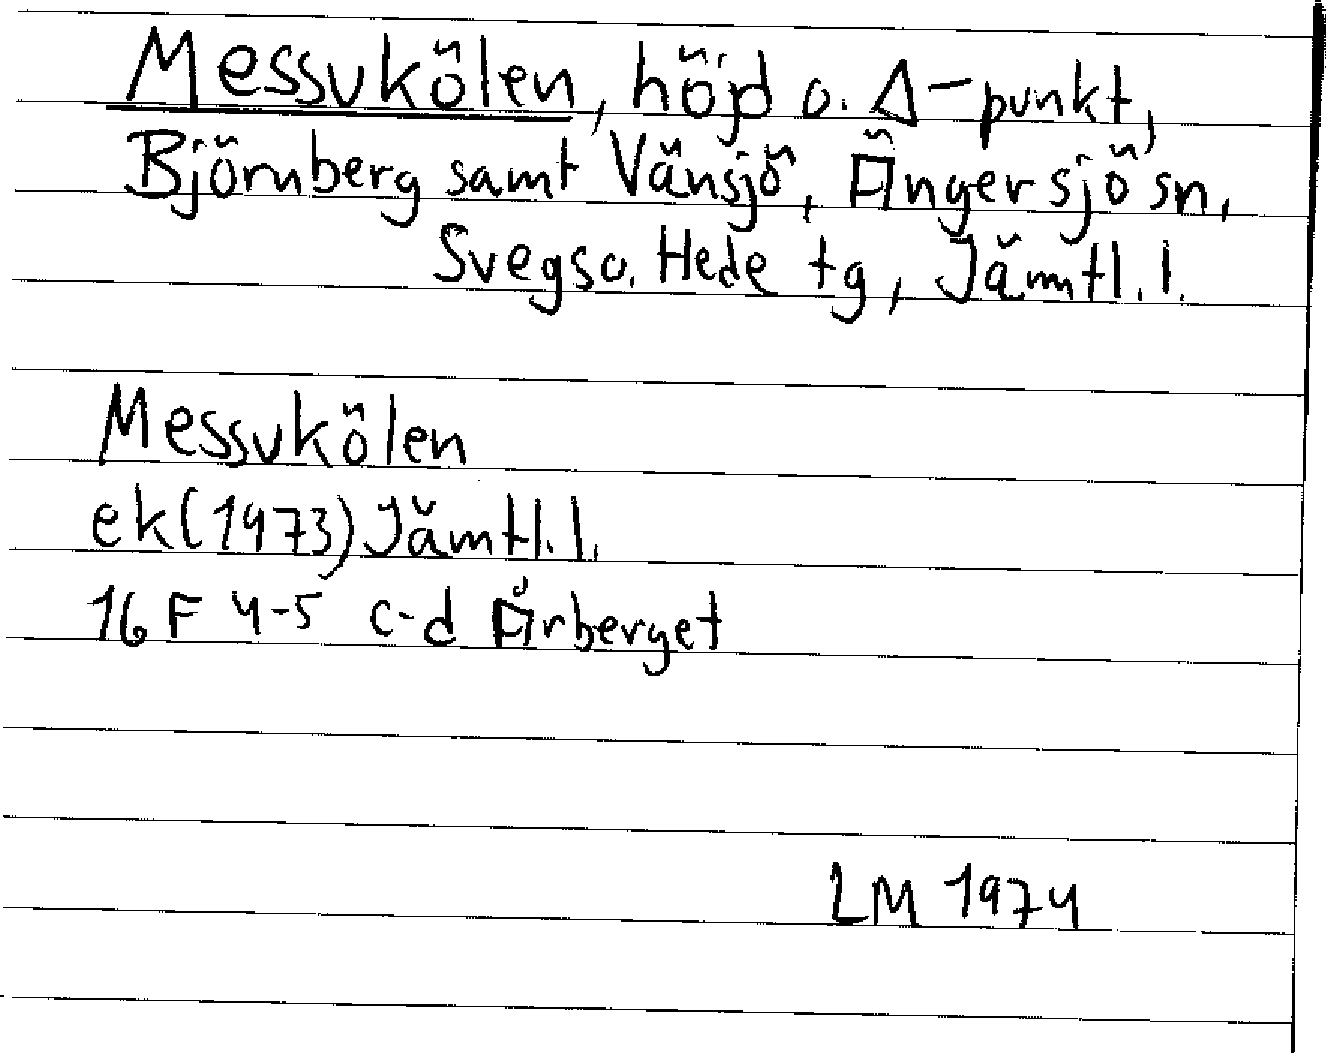 Messvkölen, höjd o. Δ-punkt,
Björnberg samt Vänsjö, Ängersjö sn,
Svegs o. Hede tg, Jämtl. l.
Messvkölen
ek (1973) Jämtl. l.
16 F 4-5 c-dÅrberget
LM 1974